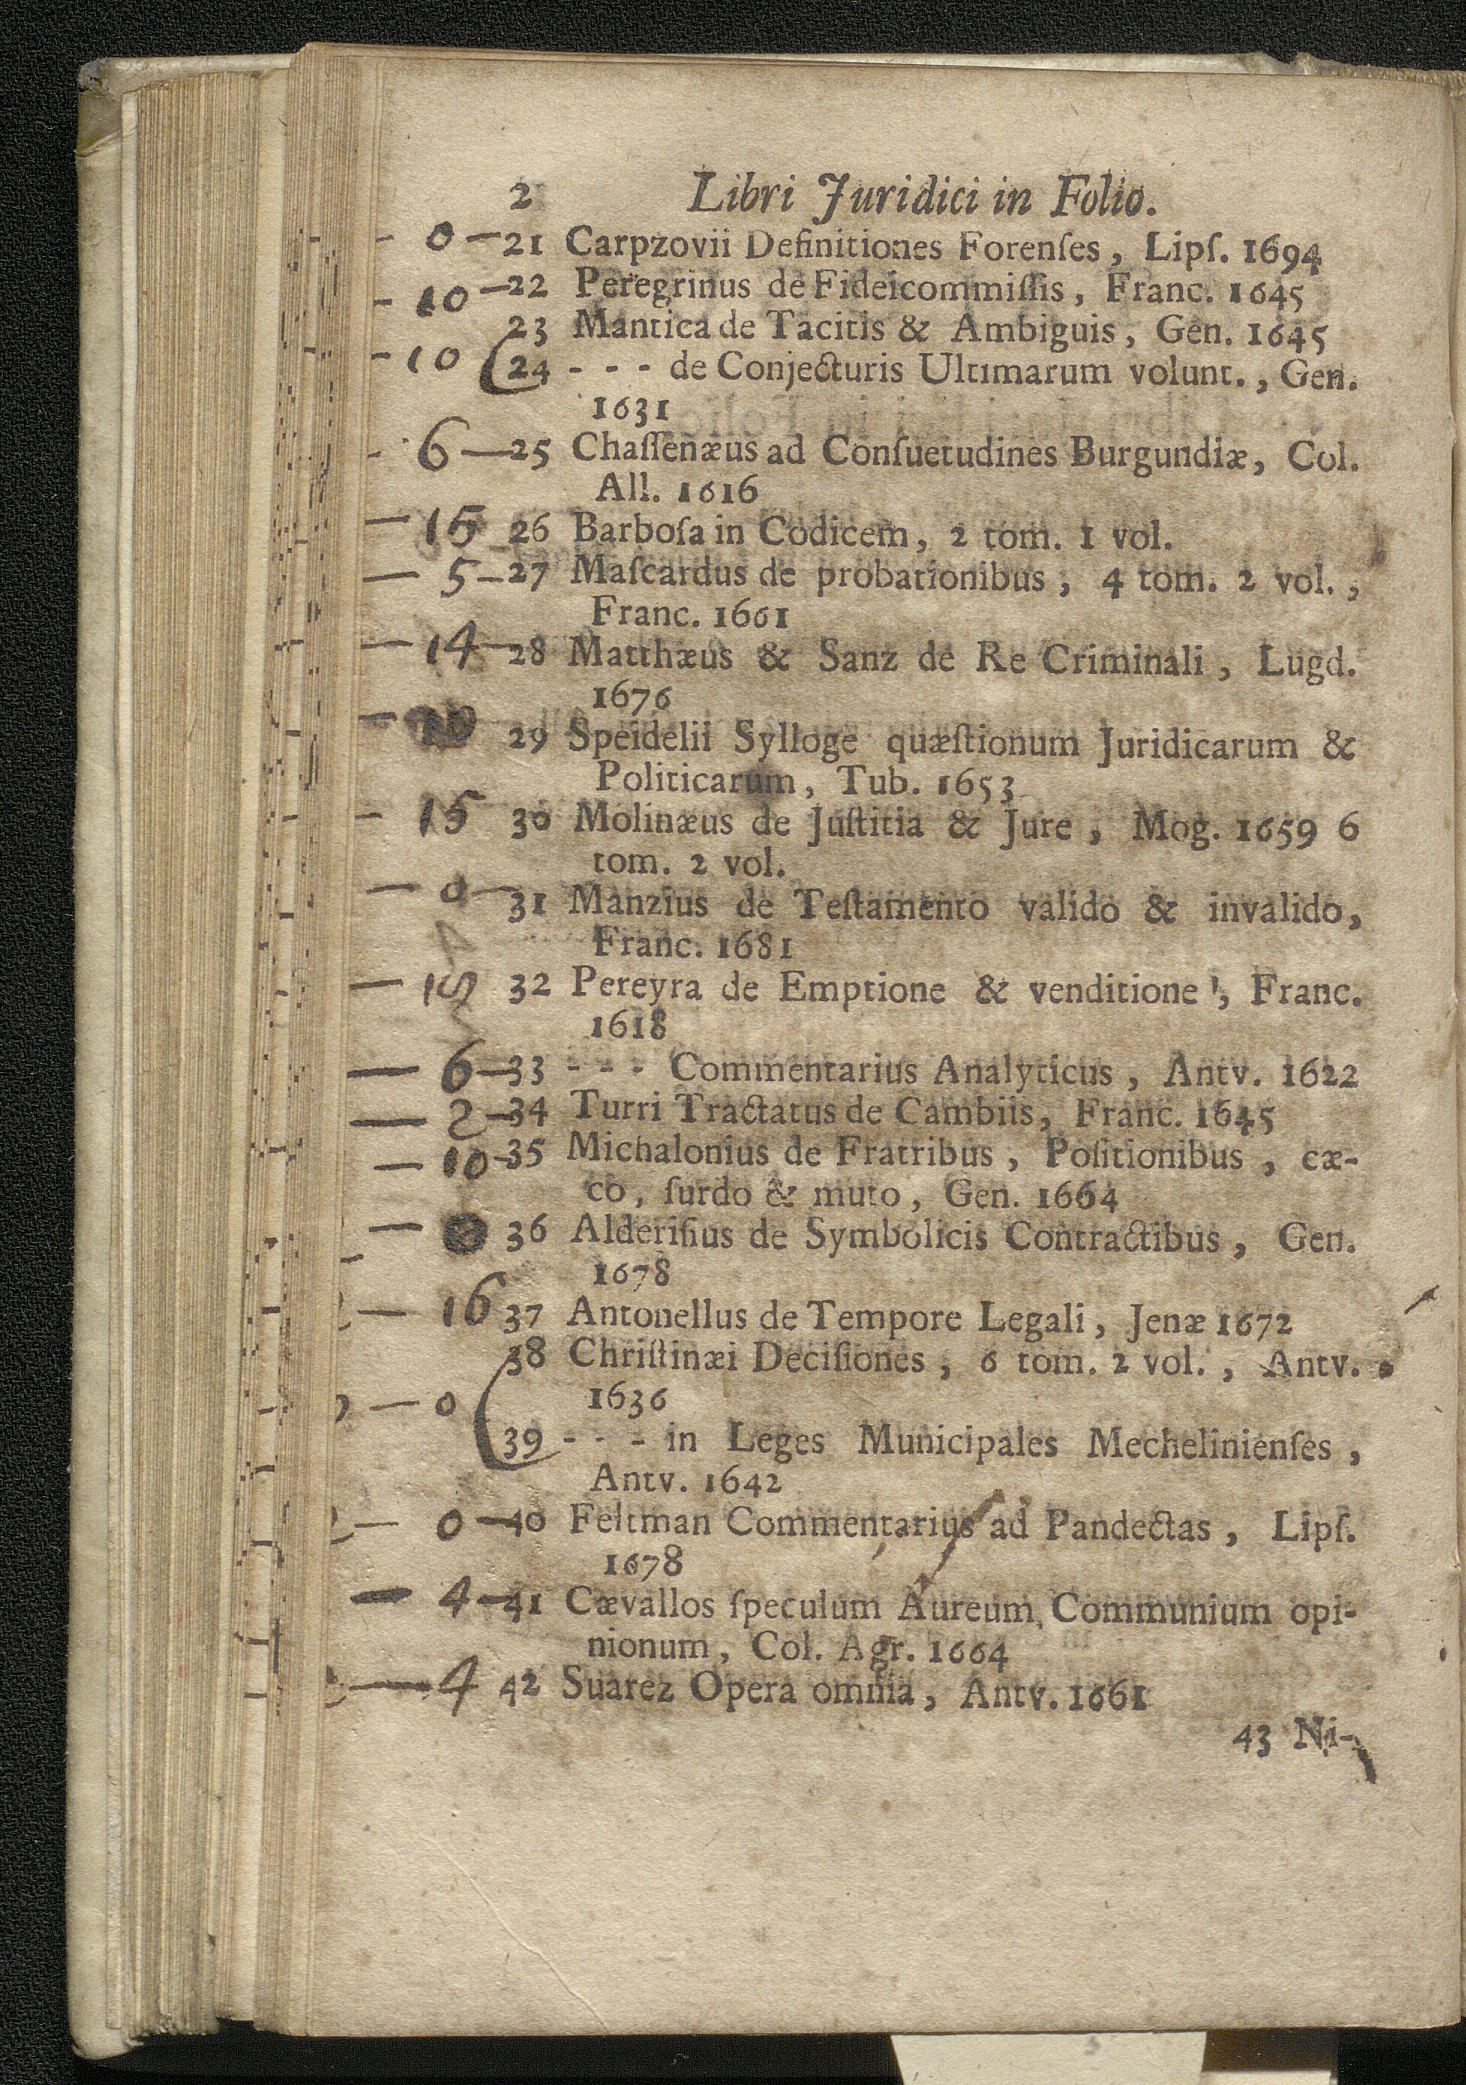 2 Libri Juridici in Folio.
- 0 - 21 Carpzovii Definitiones Forenſes, Lipſ. 1694
- 10 - 22 Peregrinus de Fideicommiſſis, Franc. 1645
23 Mantica de Tacitis & Ambiguis, Gen. 1645
- 10 ( 24 - - - de Conjecturis Ultimarum volunt., Gen.
1631
- 6 - 25 Chaſſenæus ad Conſuetudines Burgundiæ, Col.
All. 1616
- 15 26 Barboſa in Codicem, 2 tom. 1 vol.
- 5 - 27 Maſcardus de probationibus, 4 tom. 2 vol.,
Franc. 1661
- 14 - 28 Matthæus & Sanz de Re Criminali, Lugd.
1676
- 10 29 Speidelii Sylloge quæſtionum Juridicarum &
Politicarum, Tub. 1653
- 15 30 Molinæus de Juſtitia & Jure, Mog. 1659 6
tom. 2 vol.
- 0 - 31 Manzius de Teſtamento valido & invalido,
Franc. 1681
- 15 32 Pereyra de Emptione & venditione, Franc.
1618
- 6 - 33 - - - Commentarius Analyticus, Antv. 1622
- 2 - 34 Turri Tractatus de Cambiis, Franc. 1645
- 10 - 35 Michalonius de Fratribus, Poſitionibus, cæ-
co, ſurdo & muto, Gen. 1664
- 36 Alderiſius de Symbolicis Contractibus, Gen.
1678
- 16 37 Antonellus de Tempore Legali, Jenæ 1672
38 Chriſtinæi Deciſiones, 6 tom. 2 vol., Antv.
- 0 ( 1636
39 - - - in Leges Municipales Mechelinienſes,
Antv. 1642
- 0 - 40 Feltman Commentarius ad Pandectas, Lipſ.
1678
- 4 - 41 Cævallos ſpeculum Aureum Communium opi-
nionum, Col. Agr. 1664
- 4 42 Suarez Opera omnia, Antv. 1661
43 Ni-